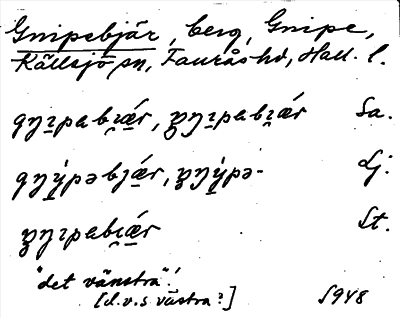 Gnipebjär, berg, Gnipe,
Källsjö sn, Faurås hd, Hall. l.
gnɪpabɪ̯ǽr, ɡnɪpabɪ̯ǽr Sa.
gnẏ́pəbjǽr, ɡnẏ́pə- Lj.
ɡnɪpabɪ̯ǽr St.
"det vänstra"!
[d.v.s västra?] S948